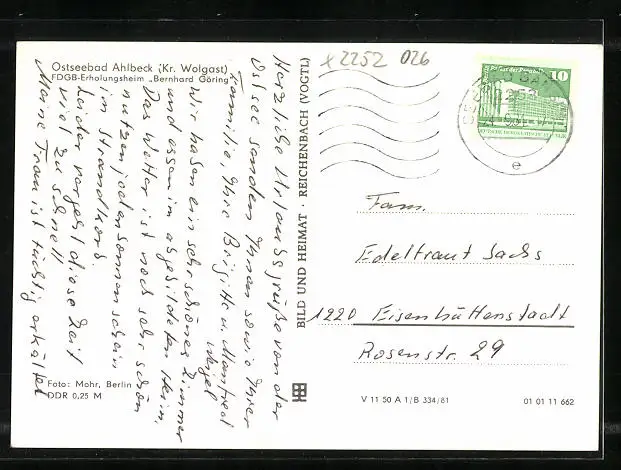 Ostseebad Ahlbeck (Kr. Wolgast)
FDGB-Erholungsheim „Bernhard Göring"
Herzliche Urlaubsgrüße von der
Ostsee senden Ihnen sowie Ihrer
Familie, Ihre Brigitte u. Manfred
Weigel
Wir haben ein sehr schönes Zimmer
und essen in abgebildeten Heim.
Das Wetter ist noch sehr schön
nutzen jeden Sonnenschein
im Strandkorb
Leider vergeht diese Zeit
viel zu schnell
Meine Frau ist tüchtig erkältet
Foto: Mohr, Berlin
DDR 0,25 M
BILD UND HEIMAT · REICHENBACH (VOGTL)
x2252 026
Palast der Republik
10
2252
e
DEUTSCHE DEMOKRATISCHE REPUBLIK
Fam.
Edeltraut Sachs
1220 Eisenhüttenstadt
Rosenstr. 29
V 11 50 A 1/B 334/81
01 01 11 662